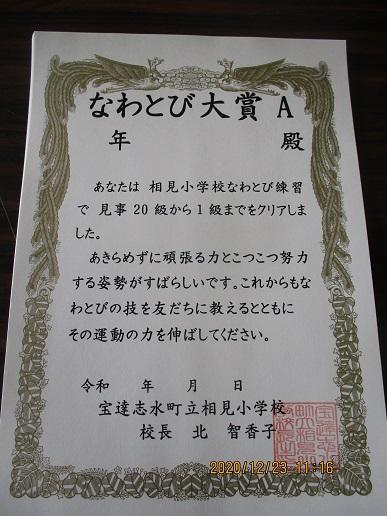 なわとび大賞 A
年 殿
あなたは 相見小学校なわとび練習
で 見事20級から1級までをクリアしま
した。
あきらめずに頑張る力とこつこつ努力
する姿勢がすばらしいです。これからもな
わとびの技を友だちに教えるとともに
その運動の力を伸ばしてください。
令和 年 月 日
宝達志水町立相見小学校
校長 北 智香子
2020/12/23 11:16